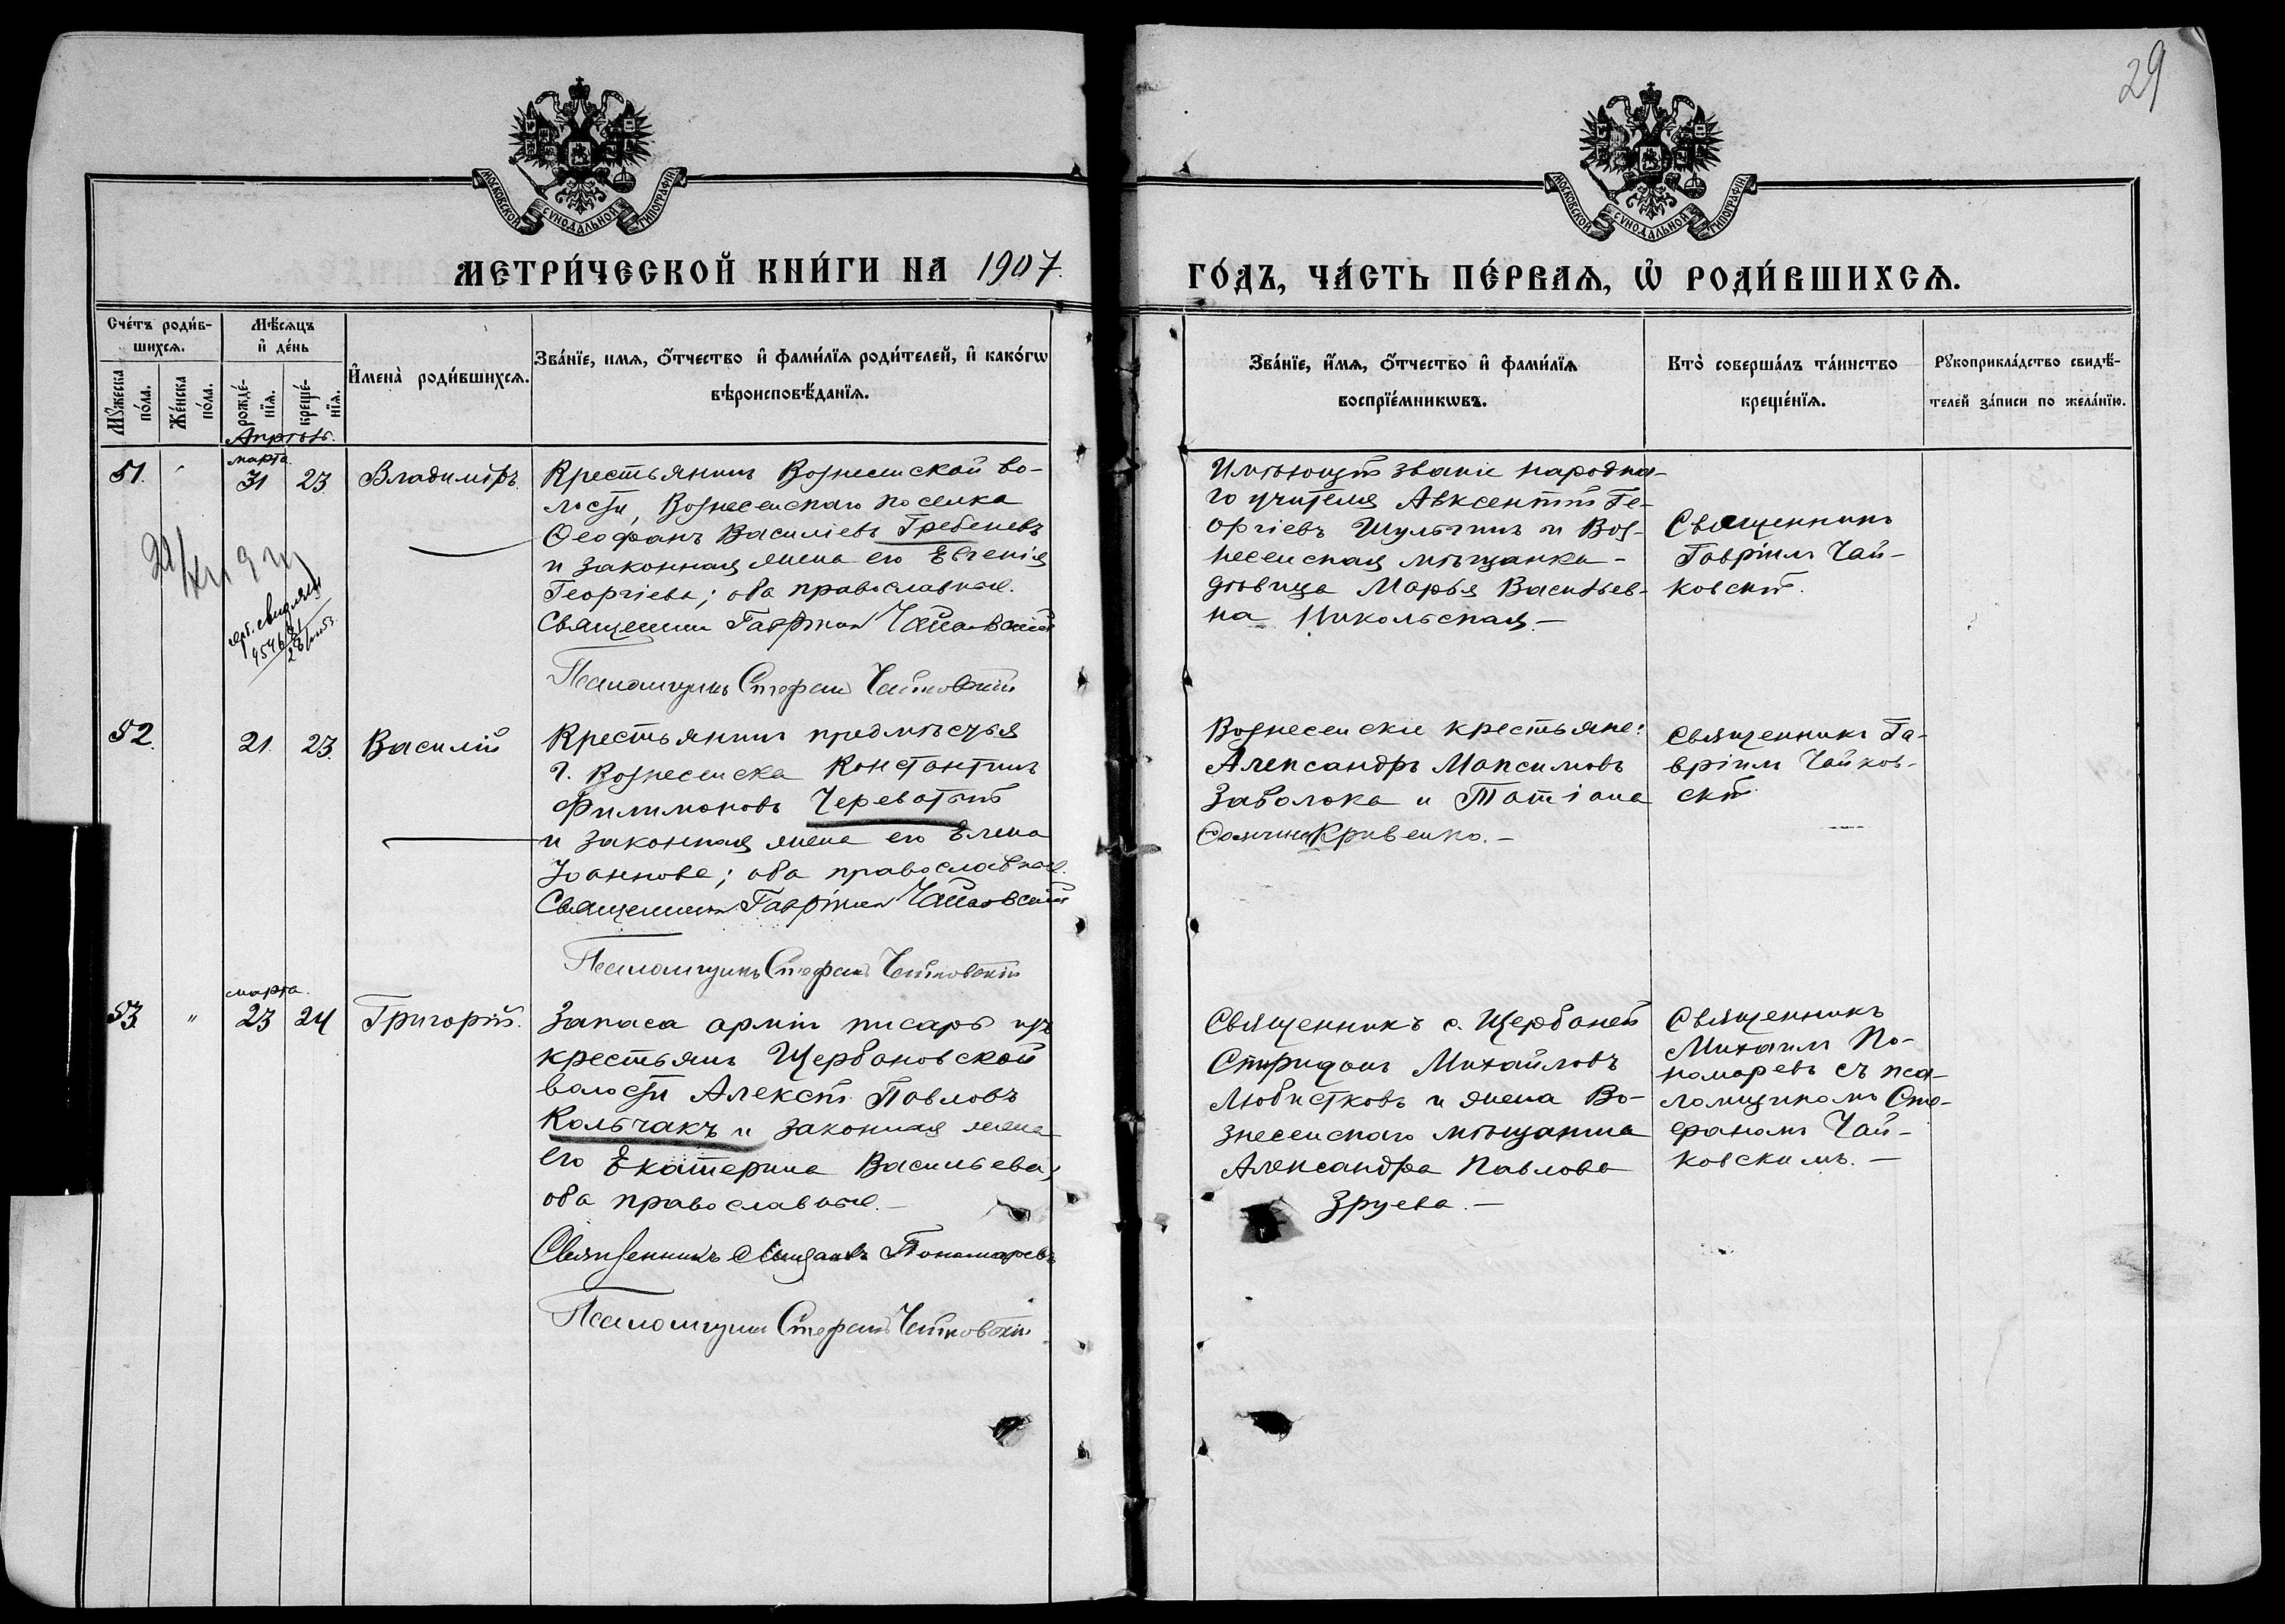 29
МОСКОВСКОЙ СУНОДАЛЬНОЙ ТИПОГРАФІИ
МОСКОВСКОЙ СУНОДАЛЬНОЙ ТИПОГРАФІИ
МЕТРИ́ЧЕСКОЙ КНИ́ГИ НА 1907.
ГО́ДЪ, ЧА́СТЬ ПЕ́РВАЯ, Ѡ҆ РОДИ́ВШИХСЯ.
Сче́тъ роди́в-
шихся.
Мѣ́сяцъ
и҆ де́нь
Мꙋ́жеска
по́ла.
Же́нска
по́ла.
рожде́-
нїя.
креще́-
нїя.
И҆мена̀ роди́вшихся.
Зва́нїе, имя, ѻ҆́тчество и҆ фами́лїя роди́телей, и҆ како́гѡ
вѣроисповѣ́данїя.
Зва́нїе, и҆́мя, ѻ҆́тчество и҆ фами́лїя
воспрїе́мникѡвъ.
Кто̀ соверша́лъ та́инство
креще́нїя.
Рꙋкоприкла́дство свидѣ́-
телей за́писи по жела́нїю.
Апрѣль.
51.
марта
31
23
Владиміръ
Крестьянинъ Вознесенской во-
лости, Вознесенскаго поселка
Ѳеофанъ Василіевъ Гребеневъ
и законная жена его Евгенія
Георгіева; оба православные.
Священникъ Гавріилъ Чайковскій
Псаломщикъ Стефанъ Чайковскій
Имѣющій званіе народна-
го учителя Авксентій Ге-
оргіевъ Шульгинъ и Воз-
несенская мѣщанка-
дѣвица Марья Васильев-
на Никольская.—
Священникъ
Гавріилъ Чай-
ковскій.
52.
21.
23.
Василій
Крестьянинъ предмѣстья
г. Вознесенска Константинъ
Филимоновъ Череватый
и законная жена его Елена
Іоаннова; оба православные.
Священникъ Гавріилъ Чайковскій
Псаломщикъ Стефанъ Чайковскій
Вознесенскіе крестьяне:
Александръ Максимовъ
Заволока и Татіана
Кривенко.—
Священникъ Га-
вріилъ Чайков-
скій
53.
"
марта.
23
24
Григорій.
Запаса арміи писарь изъ
крестьянъ Щербановской
волости Алексѣй Павловъ
Кольчакъ и законная жена
его Екатерина Васильева;
оба православные.—
Священникъ Михаилъ Пономаревъ
Псаломщикъ Стефанъ Чайковскій
Священникъ с. Щербаней
Спиридонъ Михайловъ
Любистковъ и жена Во-
знесенскаго мѣщанина
Александра Павлова
Зруева.—
Священникъ
Михаилъ По-
номаревъ съ пса-
ломщикомъ Сте-
фаномъ Чай-
ковскимъ.—